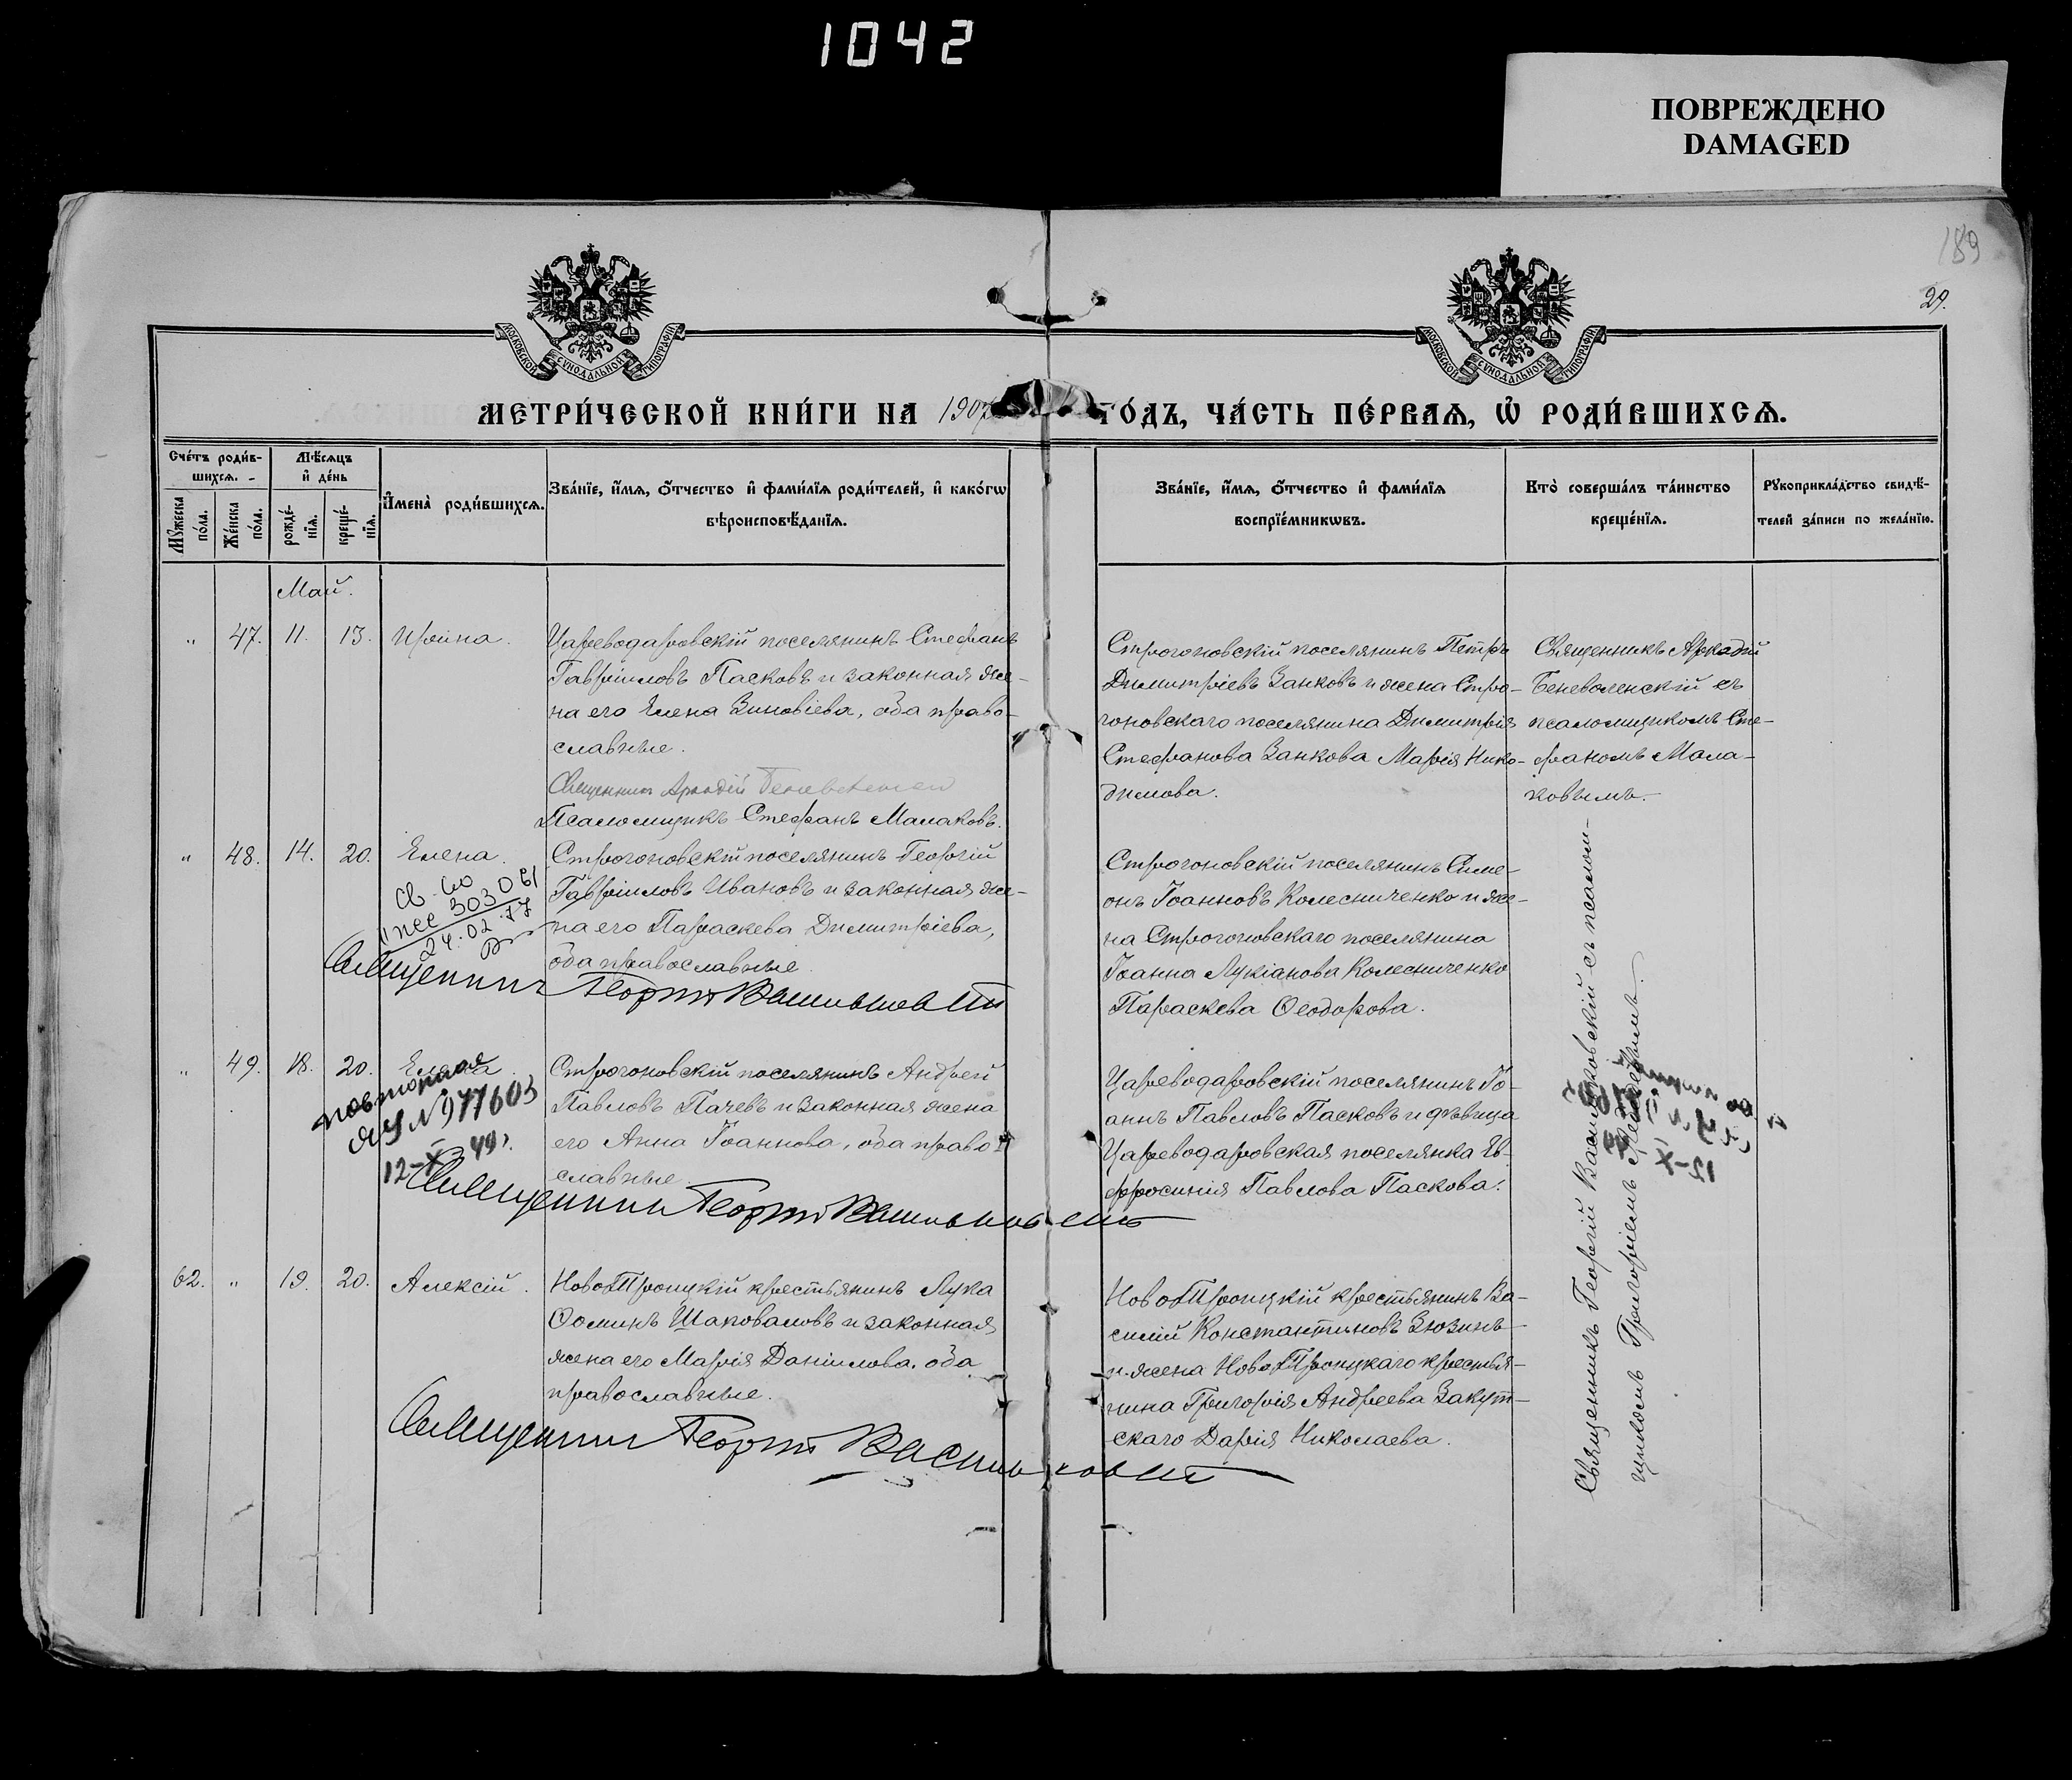 1042
ПОВРЕЖДЕНО
DAMAGED
189
29.
МОСКОВСКОЙ СѴНОДАЛЬНОЙ ТИПОГРАФІИ
МОСКОВСКОЙ СѴНОДАЛЬНОЙ ТИПОГРАФІИ
МЕТРИ́ЧЕСКОЙ КНИ́ГИ НА 1907 ГО́ДЪ, ЧА́СТЬ ПЕ́РВАЯ, Ѽ РОДИ́ВШИХСЯ.
Сче́тъ роди́в-
шихся.
Мѣ́сяцъ
и҆ де́нь
Мꙋ́жеска
по́ла.
Же́нска
по́ла.
рожде́-
нїя.
креще́-
нїя.
И҆мена̀ роди́вшихся.
Зва́нїе, и҆́мя, ѻ҆́тчество и҆ фами́лїя роди́телей, и҆ како́гѡ
вѣроисповѣ́данїя.
Зва́нїе, и҆́мя, ѻ҆́тчество и҆ фами́лїя
воспрїе́мникѡвъ.
Кто̀ соверша́лъ та́инство
креще́нїя.
Рꙋкоприкла́дство свидѣ́-
телей за́писи по жела́нїю.
Май.
" 47. 11. 13. Ирина.
Цареводаровскій поселянинъ Стефанъ
Гавріиловъ Пасковъ и законная же-
на его Елена Зиновіева, оба право-
славные.
Священник Аркадій Беневоленскій
Псаломщикъ Стефанъ Малаховъ.
Строгоновскій поселянинъ Петръ
Димитріевъ Занковъ и жена Стро-
гоновскаго поселянина Димитрія
Стефанова Занкова Марія Нико-
димова.
Священникъ Аркадій
Беневоленскій съ
псаломщикомъ Сте-
фаномъ Мала-
ховымъ.
" 48. 14. 20. Елена.
303061
24.02.77
Строгоновскій поселянинъ Георгій
Гавріиловъ Ивановъ и законная же-
на его Параскева Димитріева,
оба православные.
Священник Георгій Васильковскій
Строгоновскій поселянинъ Симе-
онъ Іоанновъ Колесниченко и же-
на Строгоновскаго поселянина
Іоанна Лукіанова Колесниченко
Параскева Ѳеодорова.
" 49. 18. 20. Елена.
повторная
ЯЧ № 977603
12-X-49 г.
Строгоновскій поселянинъ Андрей
Павловъ Пачевъ и законная жена
его Анна Іоаннова, оба право-
славные.
Священник Георгій Васильковскій
Цареводаровскій поселянинъ Іо-
аннъ Павловъ Пасковъ и дѣвица
Цареводаровская поселянка Ев-
фросинія Павлова Паскова.
62. " 19. 20. Алексій.
Ново-Троицкій крестьянинъ Лука
Ѳоминъ Шаповаловъ и законная
жена его Марія Даніилова, оба
православные.
Священник Георгій Васильковскій
Ново-Троицкій крестьянинъ Ва-
силій Константиновъ Зюзинъ
и жена Ново-Троицкаго крестья-
нина Григорія Андреева Закут-
скаго Дарія Николаева.
Священникъ Георгій Васильковскій съ псалом-
щикомъ Григоріемъ